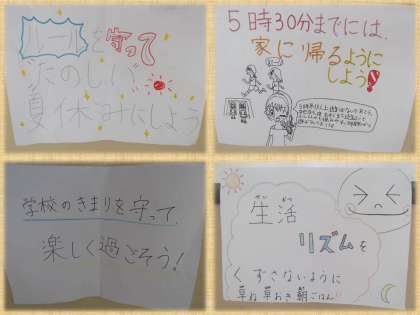 ルールを守って
たのしい
夏休みにしよう
5時30分までには、
家に帰るように
しよう!
学校のきまりを守って、
楽しく過ごそう!
せいかつ
生活
リズムを
くずさないように
草ね草おき朝ごはん!!